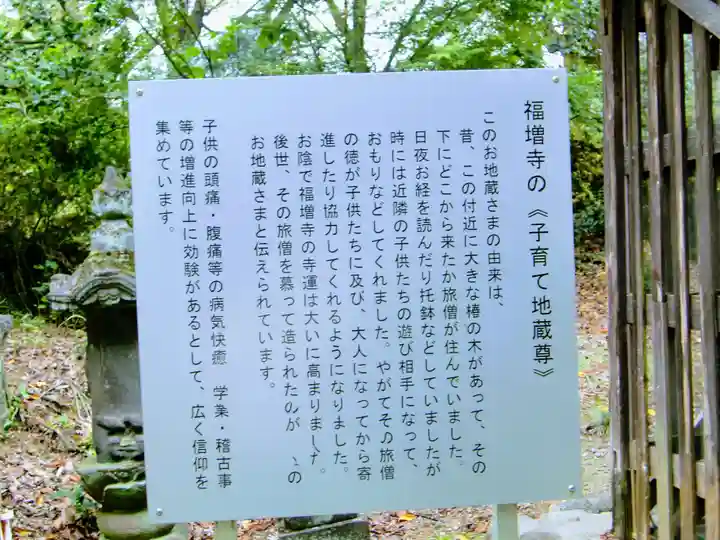 福増寺の《子育て地蔵尊》
このお地蔵さまの由来は、
昔、この付近に大きな椿の木があって、その
下にどこから来たか旅僧が住んでいました。
日夜お経を読んだり托鉢などしていましたが
時には近隣の子供たちの遊び相手になって、
おもりなどしてくれました。やがてその旅僧
の徳が子供たちに及び、大人になってから寄
進したり協力してくれるようになりました。
お陰で福増寺の寺運は大いに高まりました。
後世、その旅僧を慕って造られたのが、の
お地蔵さまと伝えられています。
子供の頭痛・腹痛等の病気快癒 学業・稽古事
等の増進向上に効験があるとして、広く信仰を
集めています。